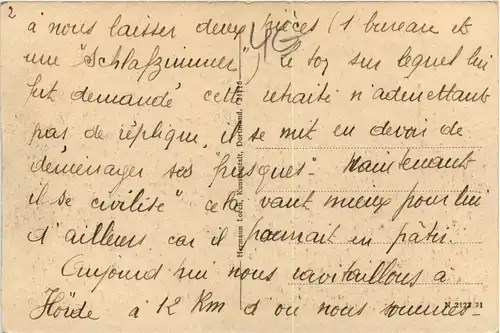 2
à nous laisser deux pièces (1 bureau et
une "Schlafzimmer", le ton sur lequel lui
fut demandé cette retraite n'admettant
pas de réplique, il se mit en devoir de
déménager ses "frusques". Maintenant
il se civilise" cela vaut mieux pour lui
d'ailleurs car il pourrait en pâtir.
Aujourd'hui nous ravitaillons à
Hörde à 12 Km d'où nous sommes-
Hermann Lorch, Kunstanstalt, Dortmund.
N 2122 71